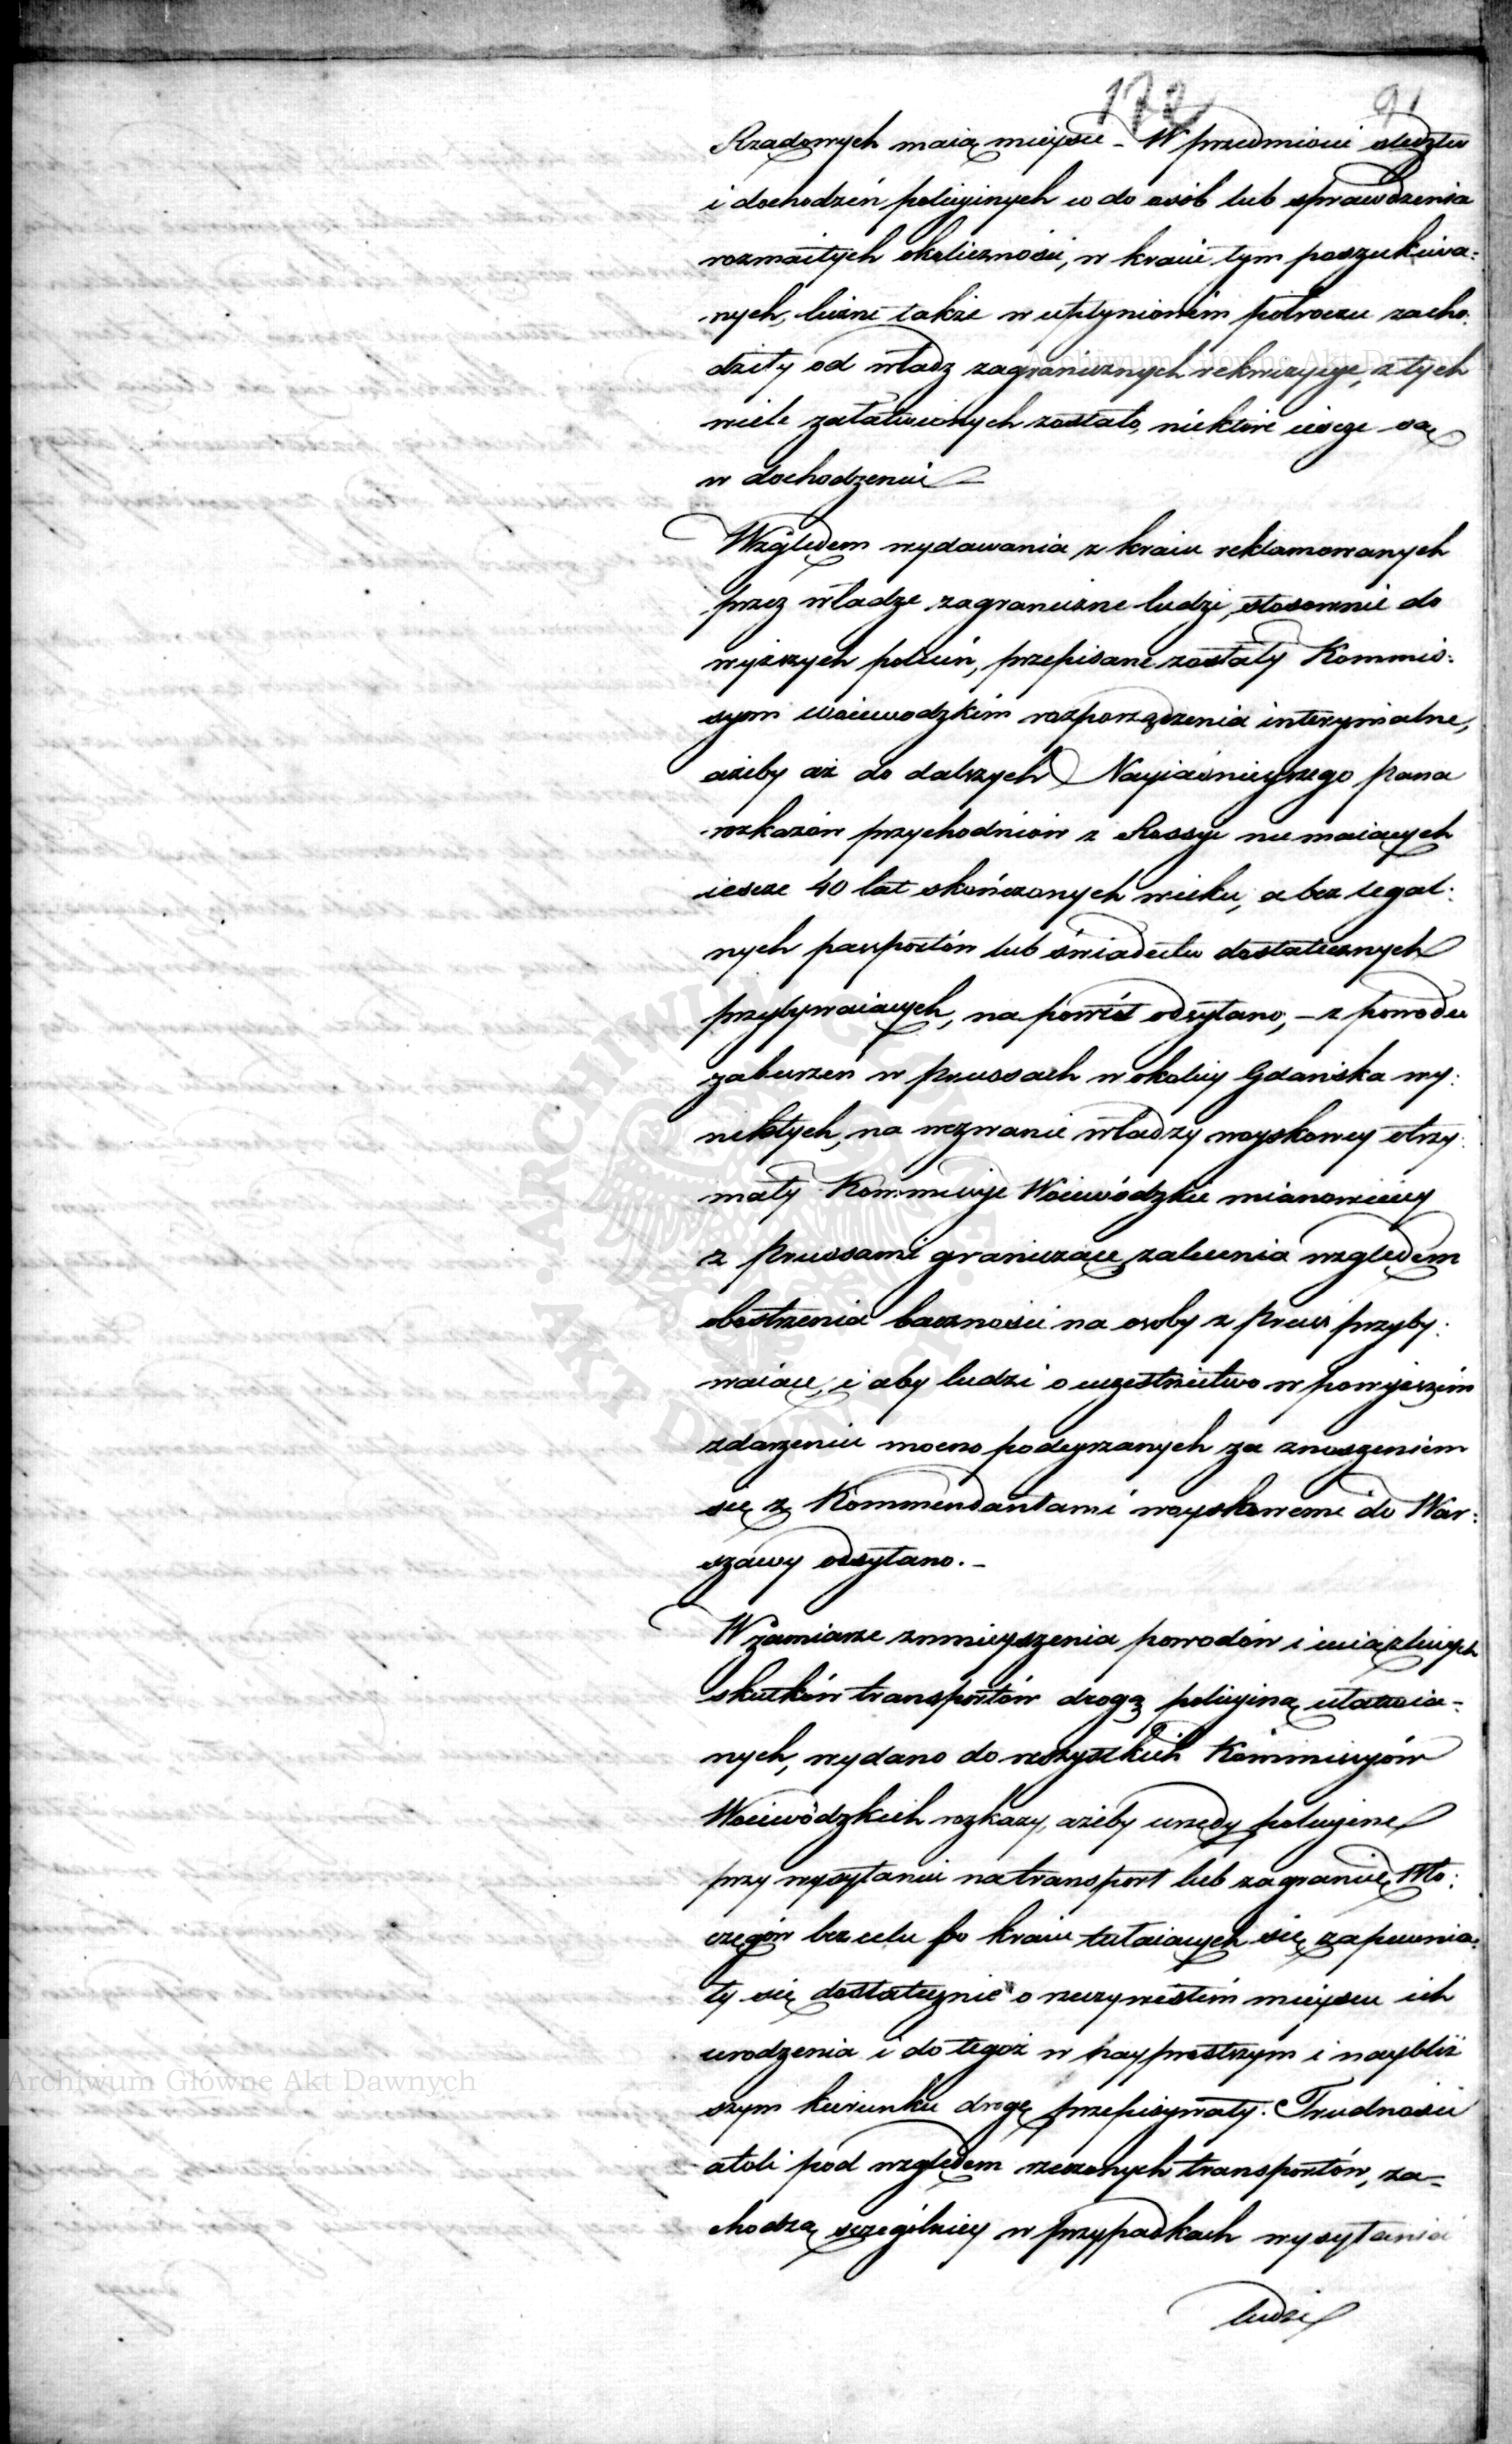 172 91
Rządowych maią mieysce – W przedmiocie śledztw
i dochodzeń policyinych co do osób lub sprawdzenia
rozmaitych okoliczności, w kraiu tym poszukiwa:
nych, liczne także w upłynioném półroczu zacho:
dziły od władz zagranicznych rekwizycye, z tych
wiele załatwionych zostało, niektóre iescze są
w dochodzeniu –
Względem wydawania z kraiu reklamowanych
przez władze zagraniczne ludzi, stosownie do
wyższych poleceń, przepisane zostały Kommis:
syom woiewodzkim rozporządzenia interymalne,
ażeby aż do dalszych Nayiaśnieyszego Pana
rozkazów przychodniów z Rossyi nie maiących
iescze 40 lat skończonych wieku, a bez legal:
nych paszportów lub świadectw dostatecznych
przybywaiących, na powrót odsyłano, – z powodu
zaburzeń w Prussach w okolicy Gdańska wy:
nikłych, na wezwanie władzy woyskowey otrzy:
mały Kommissye Woiewódzkie mianowiciey
z Prussami graniczące zalecenia względem
obostrzenia baczności na osoby z Pruss przyby:
waiące, i aby ludzi o uczestnictwo w powyższém
zdarzeniu mocno podeyrzanych za znoszeniem
się z Kommendantami woyskowemi do War:
szawy odsyłano. –
W zamiarze zmnieyszenia powodów i uciążliwych
skutków transportów drogą policyiną ułatwia–
nych, wydano do wszystkich Kommissyów
Woiewódzkich rozkazy, ażeby urzędy policyine
przy wysyłaniu na transport lub zagranicę Wło:
częgów bez celu po kraiu tułaiących się, zapewnia:
ły się dostatecznie o rzeczywistém mieyscu ich
urodzenia i do tegoż w nayprostszym i naybliż
szym kierunku drogę przepisywały. Trudności
atoli pod względem rzeczonych transportów, za–
chodzą sczególniey w przypadkach wysyłania
ludzi
Archiwum Główne Akt Dawnych
Archiwum Główne Akt Dawnych
ARCHIWUM GŁÓWNE AKT DAWNYCH